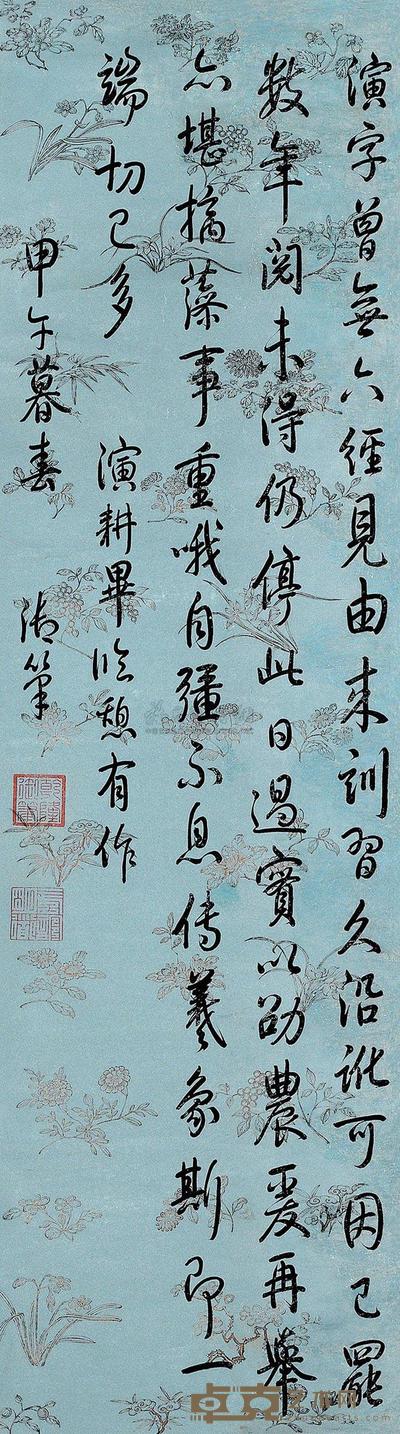 演字曾無六經見由來訓習久沿訛可因已罷
數年閱未得仍停此日過實以劭農爰再舉
亦堪摛藻事重哦自彊不息傳羲象斯即一
端切已多
演耕畢臨憩有作
甲午暮春
御筆
乾隆御筆
卓克艺术网